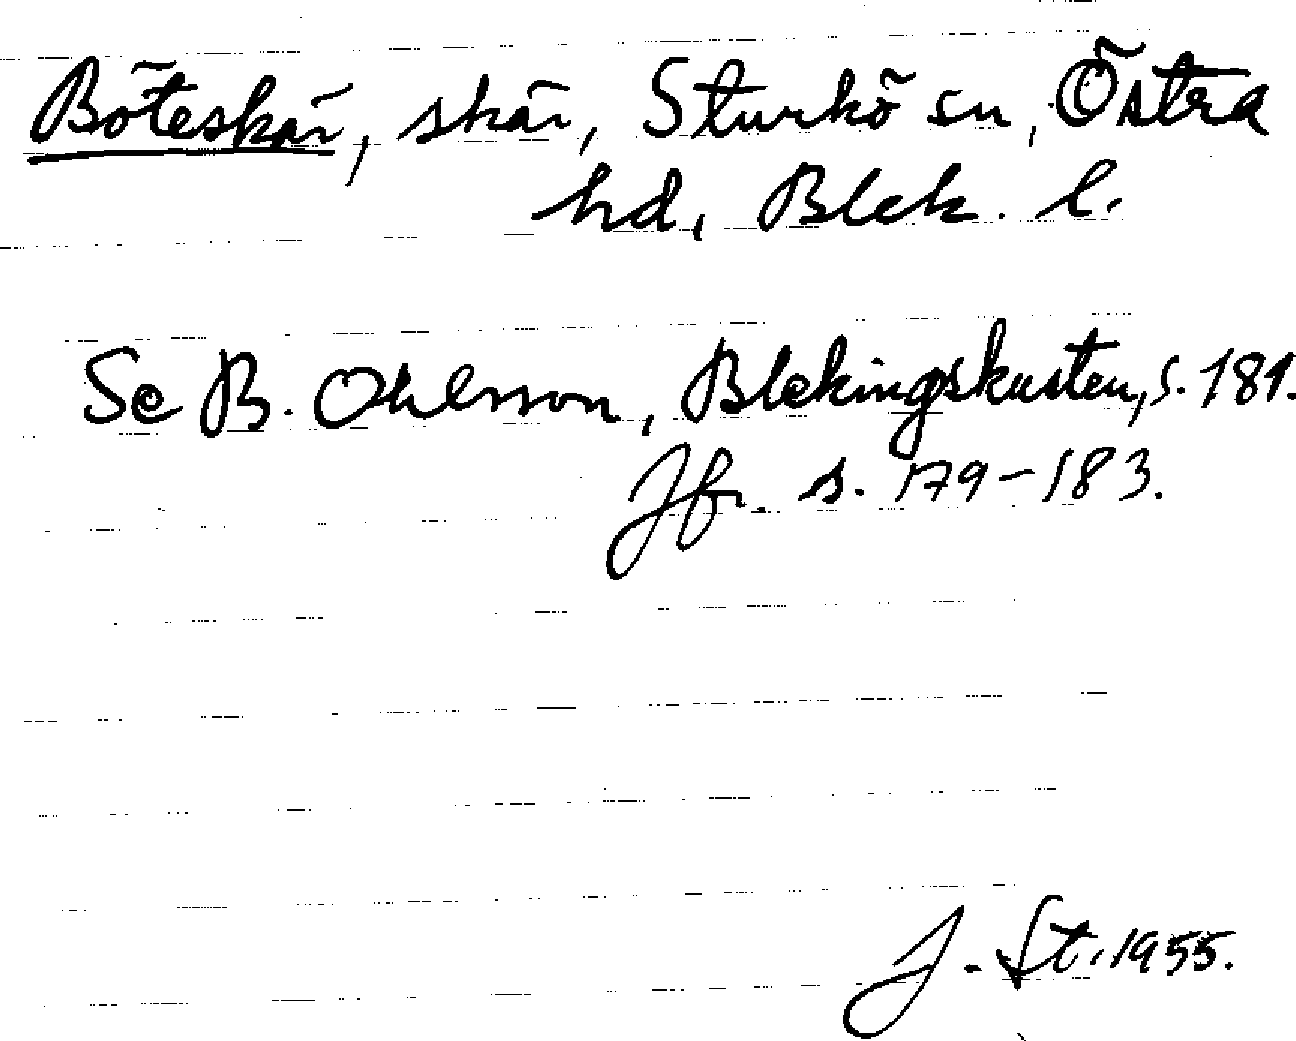 Böteskär, skär, Sturkö sn, Östra
hd, Blek. l.
Se B. Ohlsson, Blekingskusten, s. 181.
Jfr. s. 179-183.
J. St. 1955.